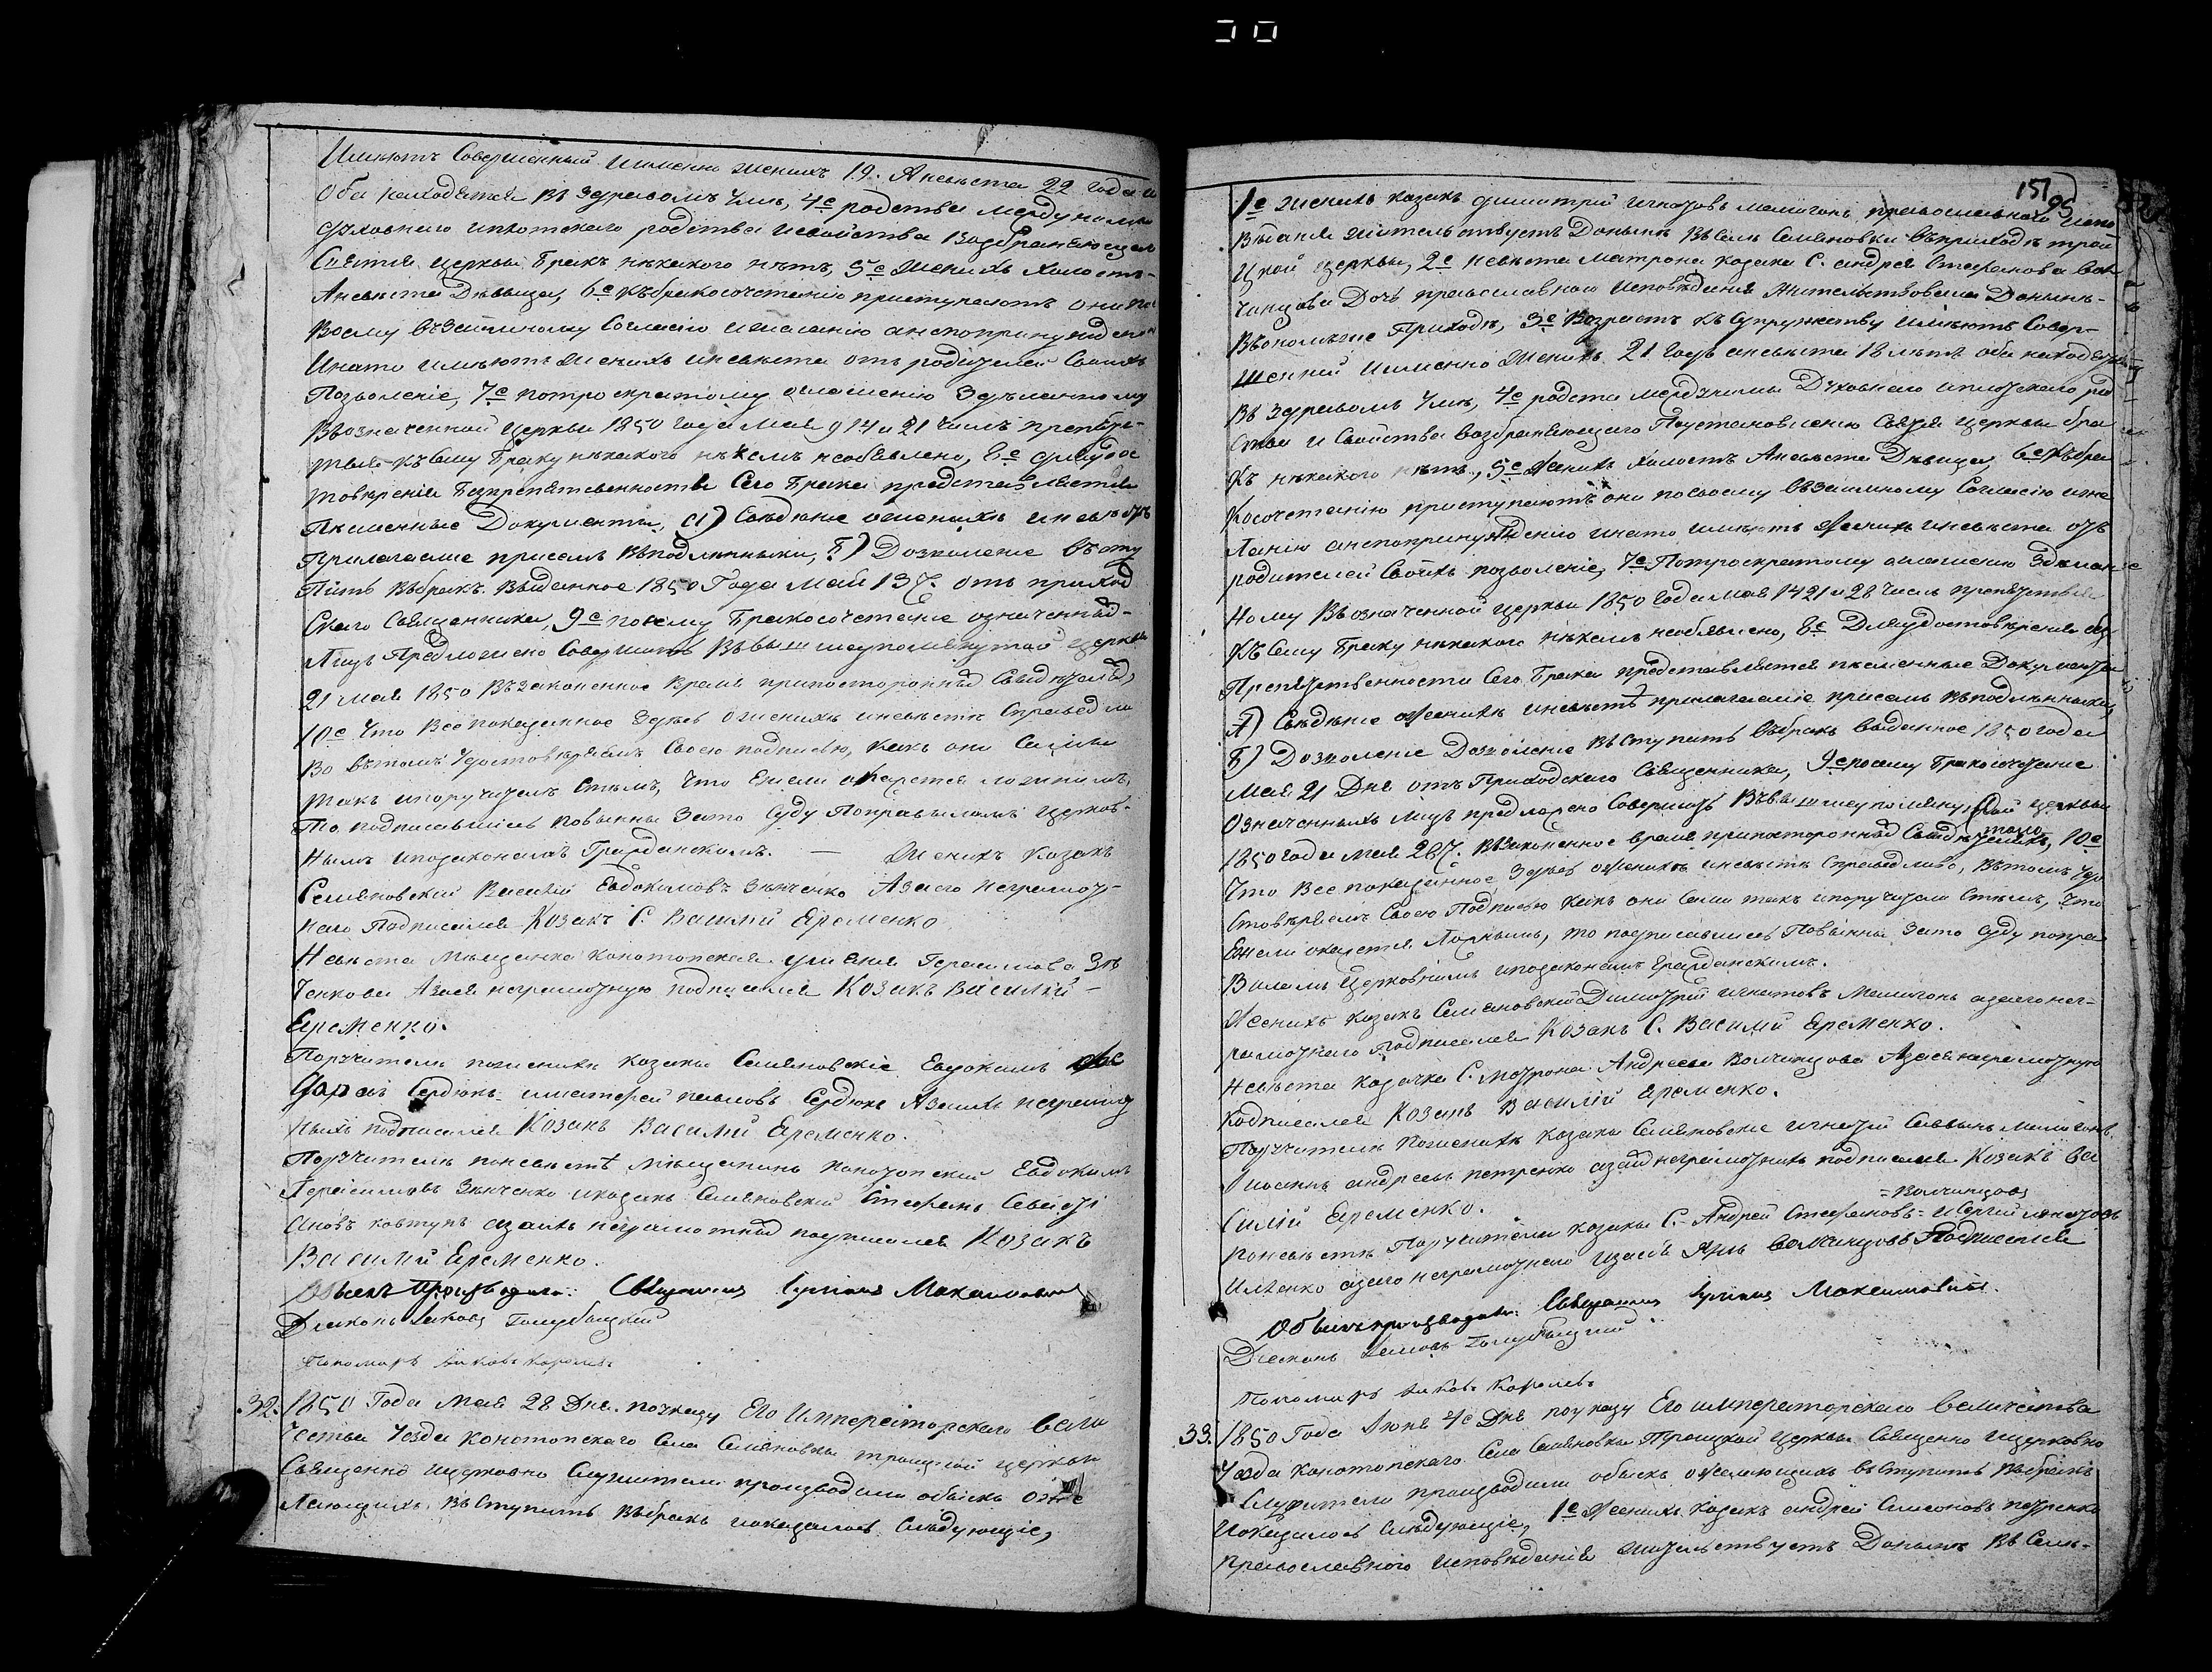 Имѣютъ Совершенный Именно женихъ 19. Аневѣста 22 года и
Оба находятся Въ здравомъ Умѣ, 4е родства между ними
духовнаго иплотскаго родства исвойства Возбраняющаго
Святія церквы Бракъ нѣкакого нѣтъ, 5е Женихъ Холостъ-
Аневѣста Дѣвыца, 6е Къбракосочетанію приступаютъ они по
Воему вьзаимному Согласію ижеланію анепопринужденію
Инато имѣютъ женихъ иневѣста отъ родителей Своихъ
Позволеніе, 7е потроекратному оглашенію Здѣланному
Въозначенной церквы 1850 года Мая 9 14 и 21 числъ препят-
твія-къ сему Браку нѣкакого нѣкѣмъ необявлено, 8е длѧ удос
товѣренія Безпрепятственности Сего Брака представляются
Писменные Документы, а) Свѣденіе оженихѣ иневѣстѣ
Прилагаемые присемъ Въподлинныки, Б) Дозволеніе Всту
Пить Въбракъ Выданное 1850 Года Мая 13 ч. отъ приход
Скаго Священника, 9е посему Бракосочетаніе означенныхъ-
Лицъ Предложено Совершить Въвышеупомянутой церквы
21 мая 1850 Въ законенное время припостороннихъ Свидѣтеляхъ,
10е Что Все показанное Здѣсь оженихѣ иневѣстѣ Справедли
Во въ томъ Удостовѣряемъ Своею подписью, какъ они Самы
такъ ипоручителѣ Стѣмъ, что Ежели окажется ложнымъ,
То подписавшіесь повынны Зато Суду Поправыламъ церков-
Нымъ изаконамъ Гражданскимъ. — Женихъ Казакъ
Семяновскій Васылій Евдокимовъ Зѣнченко Азаего неграмот-
наго Подписался Козакъ С. Василій Еременко
Невѣста Мѣщанка Конотопская Уліяна Герасимова Зѣ
нченкова Азаея неграмотную подписался Козакъ Василій -
Еременко.
Поручители поженихѣ козаки Семяновскіе Евдокимъ
Сердюкъ иматфей павловъ Сердюкъ Азаихъ неграмот
ныхъ подписался Козакъ Василій Еременко.
Поручители поневѣстѣ мѣщанинъ конотопскій Евдокимъ
Герасимовъ Зѣнченко иказакъ Семяновскій Стефанъ Севасті
ановъ ковтунъ азаихъ неграмотныхъ подписался Козакъ
Василій Еременко.
Обыскъ производили: Священникъ Максимовичъ
Дьяконъ Іаковъ Голубыцкій
Пономарь Іаковъ Королевъ
32. 1850 Года Мая 28 Дня. поуказу Его Императорского Вели
чества Уезда Конотопскаго Села Семяновки троицкой церквы
Священно ицерковно Служители производили обыскъ о же
лающихъ Въступить Въбракъ ипоказалось Слѣдующіе,
151
1е женихъ казакъ димитрій игнатовъ малигонъ православнаго испо
Вѣданія жительствуетъ Донынѣ Въселѣ Семяновки въприходѣ трои
Цкой церквы, 2е невѣста матрона козака С. андрея Стефанова Вол
чанцова Дочь православнаго исповѣданія Жительствовала Донынѣ-
Вътомъже Приходѣ, 3е Возрастъ къ Супружеству имѣютъ Совер-
шенній именно Женихъ 21 годъ аневѣста 18 лѣтъ оба находятся
Въ здравомъ Умѣ, 4е родства междуними Духовнаго иплотскаго ро
Ства и Свойства возбраняющаго Поустановленію Святія церквы бра
къ нѣкакого нѣтъ., 5е Женихъ Холостъ Аневѣста Дѣвыца, 6е Къбра
Косочетанію приступаютъ они посвоему вьзаимному Согласію иже
Ланію анепопринужденію инато имѣютъ Женихъ иневѣста отъ
родителей Своихъ позволеніе, 7е Потроекратному оглашенію Здѣлан
Ному Въозначенной церквы 1850 года Мая 14 21 и 28 Числъ препятствія
Къ Сему Браку нѣкакого нѣкѣмъ необявлено, 8е Дляудостовѣренія без
Препятственности Сего Брака представляются писменные Документы
А) Свѣденіе оЖенихѣ иневѣстѣ прилагаеміе присемъ въподлинныки,
Б) Дозволеніе Дозволеніе Въступить Въбракъ выданное 1850 года
Мая 21 Дня отъ Приходскаго Священника, 9е посему Бракосочетаніе
Означенныхъ лицъ предложено Совершить Въвышеупомянутой церквы
1850 года Мая 28 ч. Въ законенное время припостороннихъ Свидѣтеляхъ, 10е
Что Все показанное Здѣсь оженихѣ иневѣстѣ Справедливо, Въ томъ Удо
Стовѣряемъ Своею Подписью какъ они Самы такъ ипоручители Стѣмъ, что
Ежели окажется Ложнымъ, то подписавшіесь Повынны Зато Суду попра
Виламъ Церковнимъ изаконамъ Гражданскимъ.
Женихъ Козакъ Семяновскій Димитрій игнатовъ Малигонъ азаегонег-
рамотнаго Подписался Козакъ С. Василій Еременко.
Невѣста Козачка С. Матрона Андреева Волчанцова Азаея неграмотную
подписался Козакъ Василій Еременко.
Поручители Поженихѣ козаки Семяновскіе игнатій Саввынъ малигонъ
Іосифъ андреевъ петренко азаихъ неграмотнихъ подписался Козакъ Ва
силій Еременко.
=Волчанцовъ
Поневѣстѣ Поручители козаки С.- Андрей Стефановъ= иСергій
Ильенко азаего неграмотнаго Волчанцовъ Подписался
Обыскъ производили: Священникъ Максимовичъ.
Дьяконъ Іаковъ Голубыцкій
Пономарь Іаковъ Королевъ
33. 1850 Года Іюня 4е Дня поуказу Его императорскаго величества
Уезда Конотопскаго Села Семяновки Троицкой церквы Священно ицерковно
Служители производили обыскъ оЖелающихъ въступить Въбракъ
Ипоказалось Слѣдующіе, 1е Женихъ Козакъ андрей Симоновъ петренко
православного исповѣданія жительствуетъ Донынѣ Въ Селѣ-